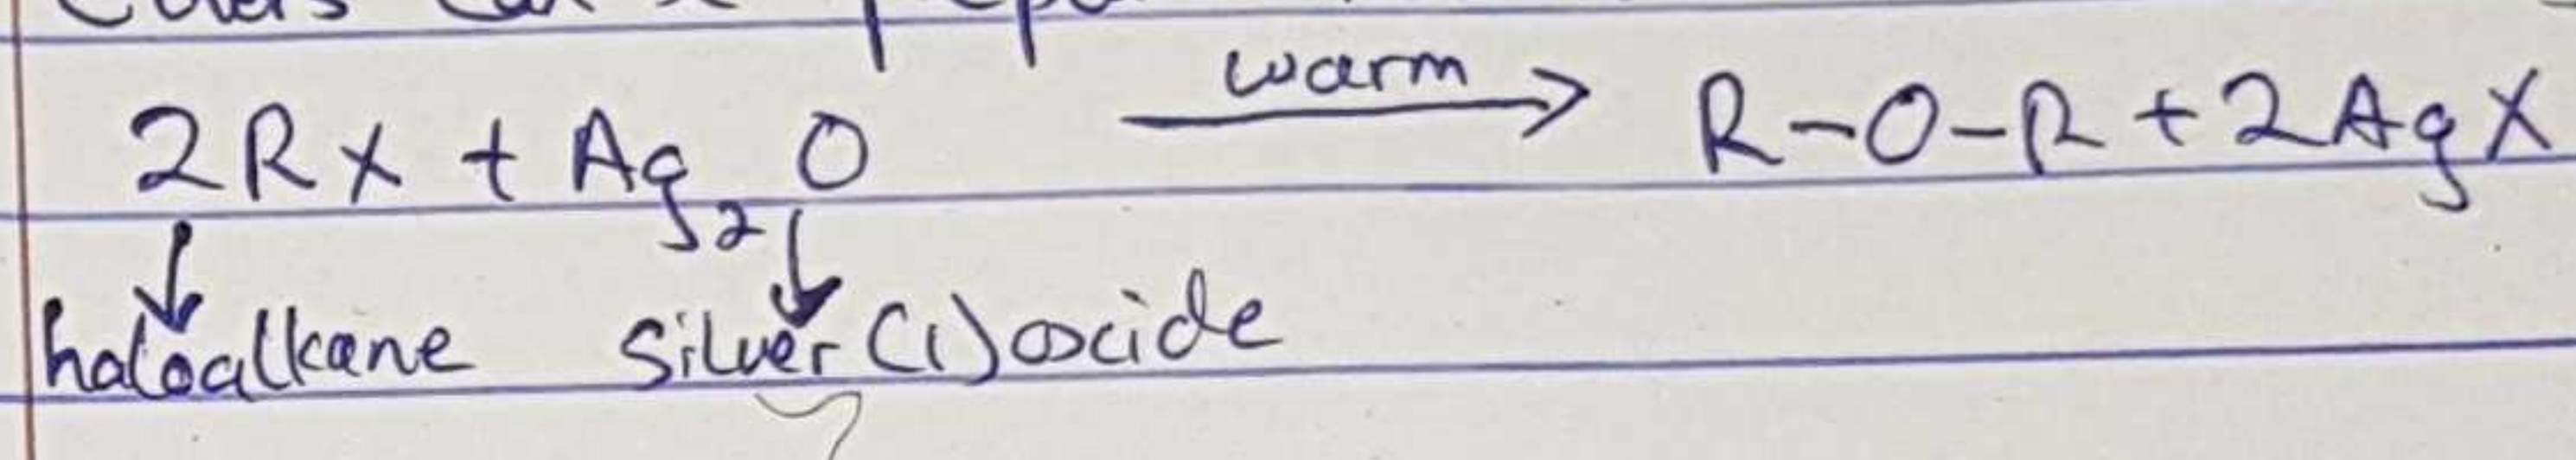 2RX + Ag₂O warm→ R-O-R + 2AgX
↓ ↓
haloalkane silver(I)oxide